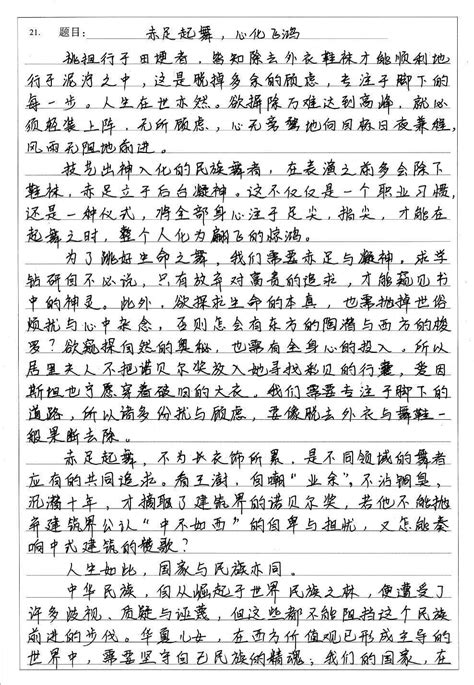 21. 题目: 赤足起舞,心化飞鸿
挑担行于田埂者,皆知除去外衣鞋袜才能顺利地
行于泥泞之中,这是脱掉多余的顾虑,专注于脚下的
每一步。人生在世亦然。欲摒除万难达到高峰,就必
须轻装上阵,无所顾虑,心无旁骛地向目标日夜兼程,
风雨无阻地前进。
技艺出神入化的民族舞者,在表演之前多会除下
鞋袜,赤足立于后台凝神。这不仅仅是一个职业习惯,
还是一种仪式,将全部身心注于足尖,指尖,才能在
起舞之时,整个人化为翩飞的惊鸿。
为了跳好生命之舞,我们需要赤足与凝神。求学
钻研自不必说,只有放弃对富贵的追求,才能窥见书
中的神灵。此外,欲探求生命的本真,也需抛掉世俗
烦扰与心中杂念,否则怎会有东方的陶潜与西方的梭
罗?欲窥探自然的奥秘,也需有全身心的投入。所以
居里夫人不把诺贝尔奖放入她寻找彩贝的行囊,爱因
斯坦也宁愿穿着破旧的大衣。我们需要专注于脚下的
道路,所以诸多纷扰与顾虑,要像脱去外衣与舞鞋一
般果断去除。
赤足起舞,不为长衣饰所累,是不同领域的舞者
应有的共同追求。看王澍,自嘲“业余”,不沾铜臭,
沉潜十年,才摘取了建筑界的诺贝尔奖,若他不能抛
弃建筑界公认“中不如西”的自卑与担忧,又怎能奏
响中式建筑的赞歌?
人生如此,国家与民族亦同。
中华民族,自从崛起于世界民族之林,便遭受了
许多歧视、质疑与诬蔑,但这些都不能阻挡这个民族
前进的步伐。华夏儿女,在西方价值观已形成主导的
世界中,需要坚守自己民族的精魂;我们的国家,在